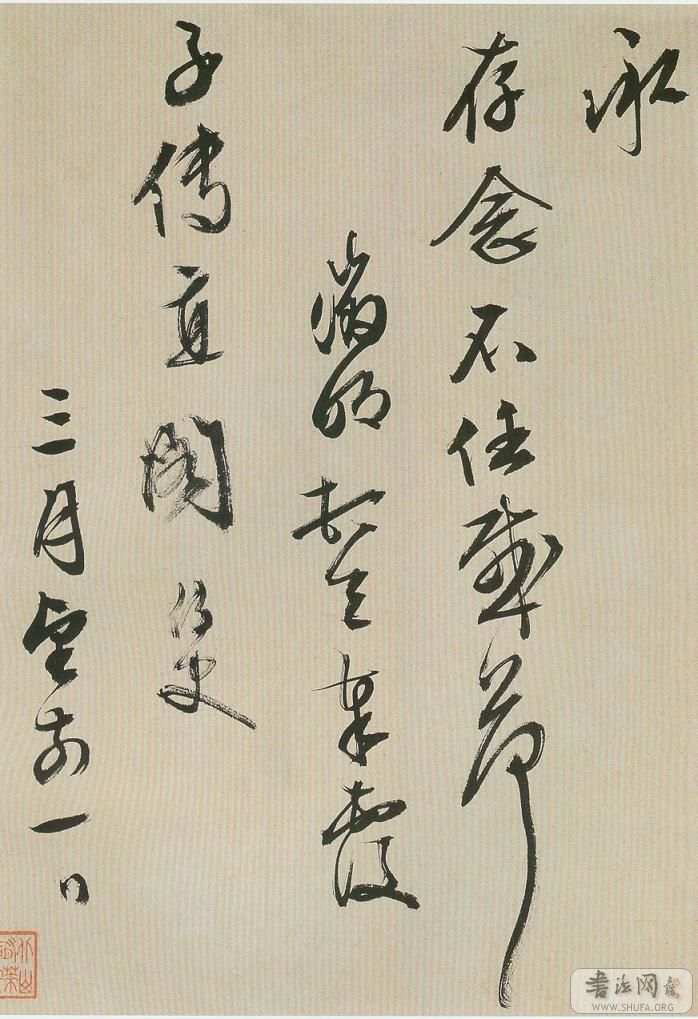 承
存念不任感荷
徵明奉覆
子傳直閣侍史
三月望前一日
書法网
WWW.SHUFA.ORG